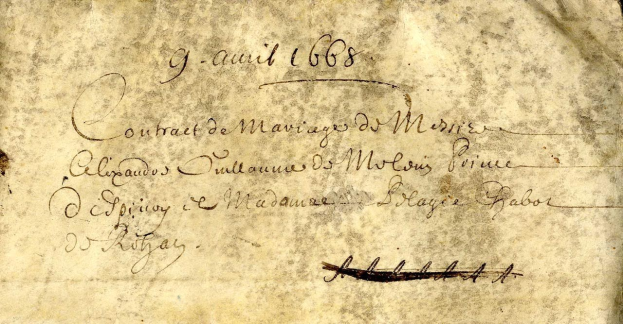 9. avril 1668.
Contract de Mariage de Messire
Alixandre Guillaume de Melein Prince
d'Espinoy et Madame Pelagie Chabot
de Rohan.